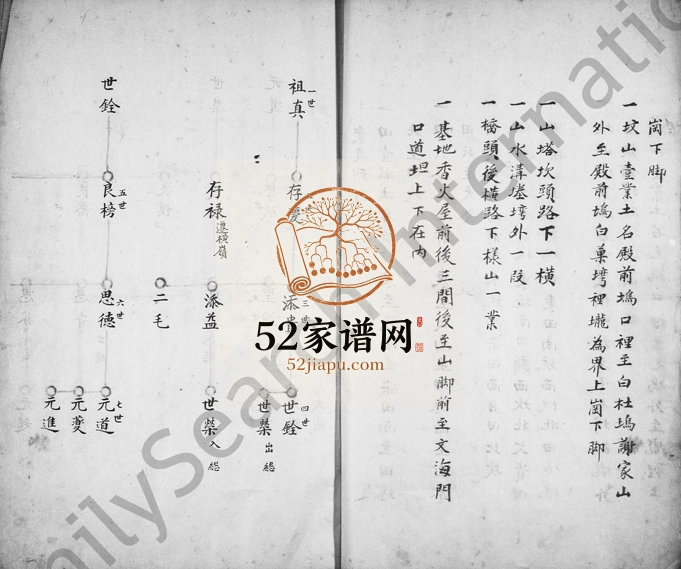 崗下脚
一坟山壹業土名殿前塢口裡至白杜塢謝家山
外至殿前塢白菓塆裡壠為界上崗下脚
一山塔坎頭路下一横
一山水溝堘塆外一段
一橋頭後横路下樣山一業
一基地香火屋前後三間後至山脚前至文海門
口道坦上下在内
一世
祖真
存
三世
添
四世
世銓
世榮出繼
存禄遷横嶺
添益
世榮入繼
二毛
世銓
五世
良榜
六世
思德
七世
元道
元夔
元進
52家谱网
52jiapu.com
FamilySearch International